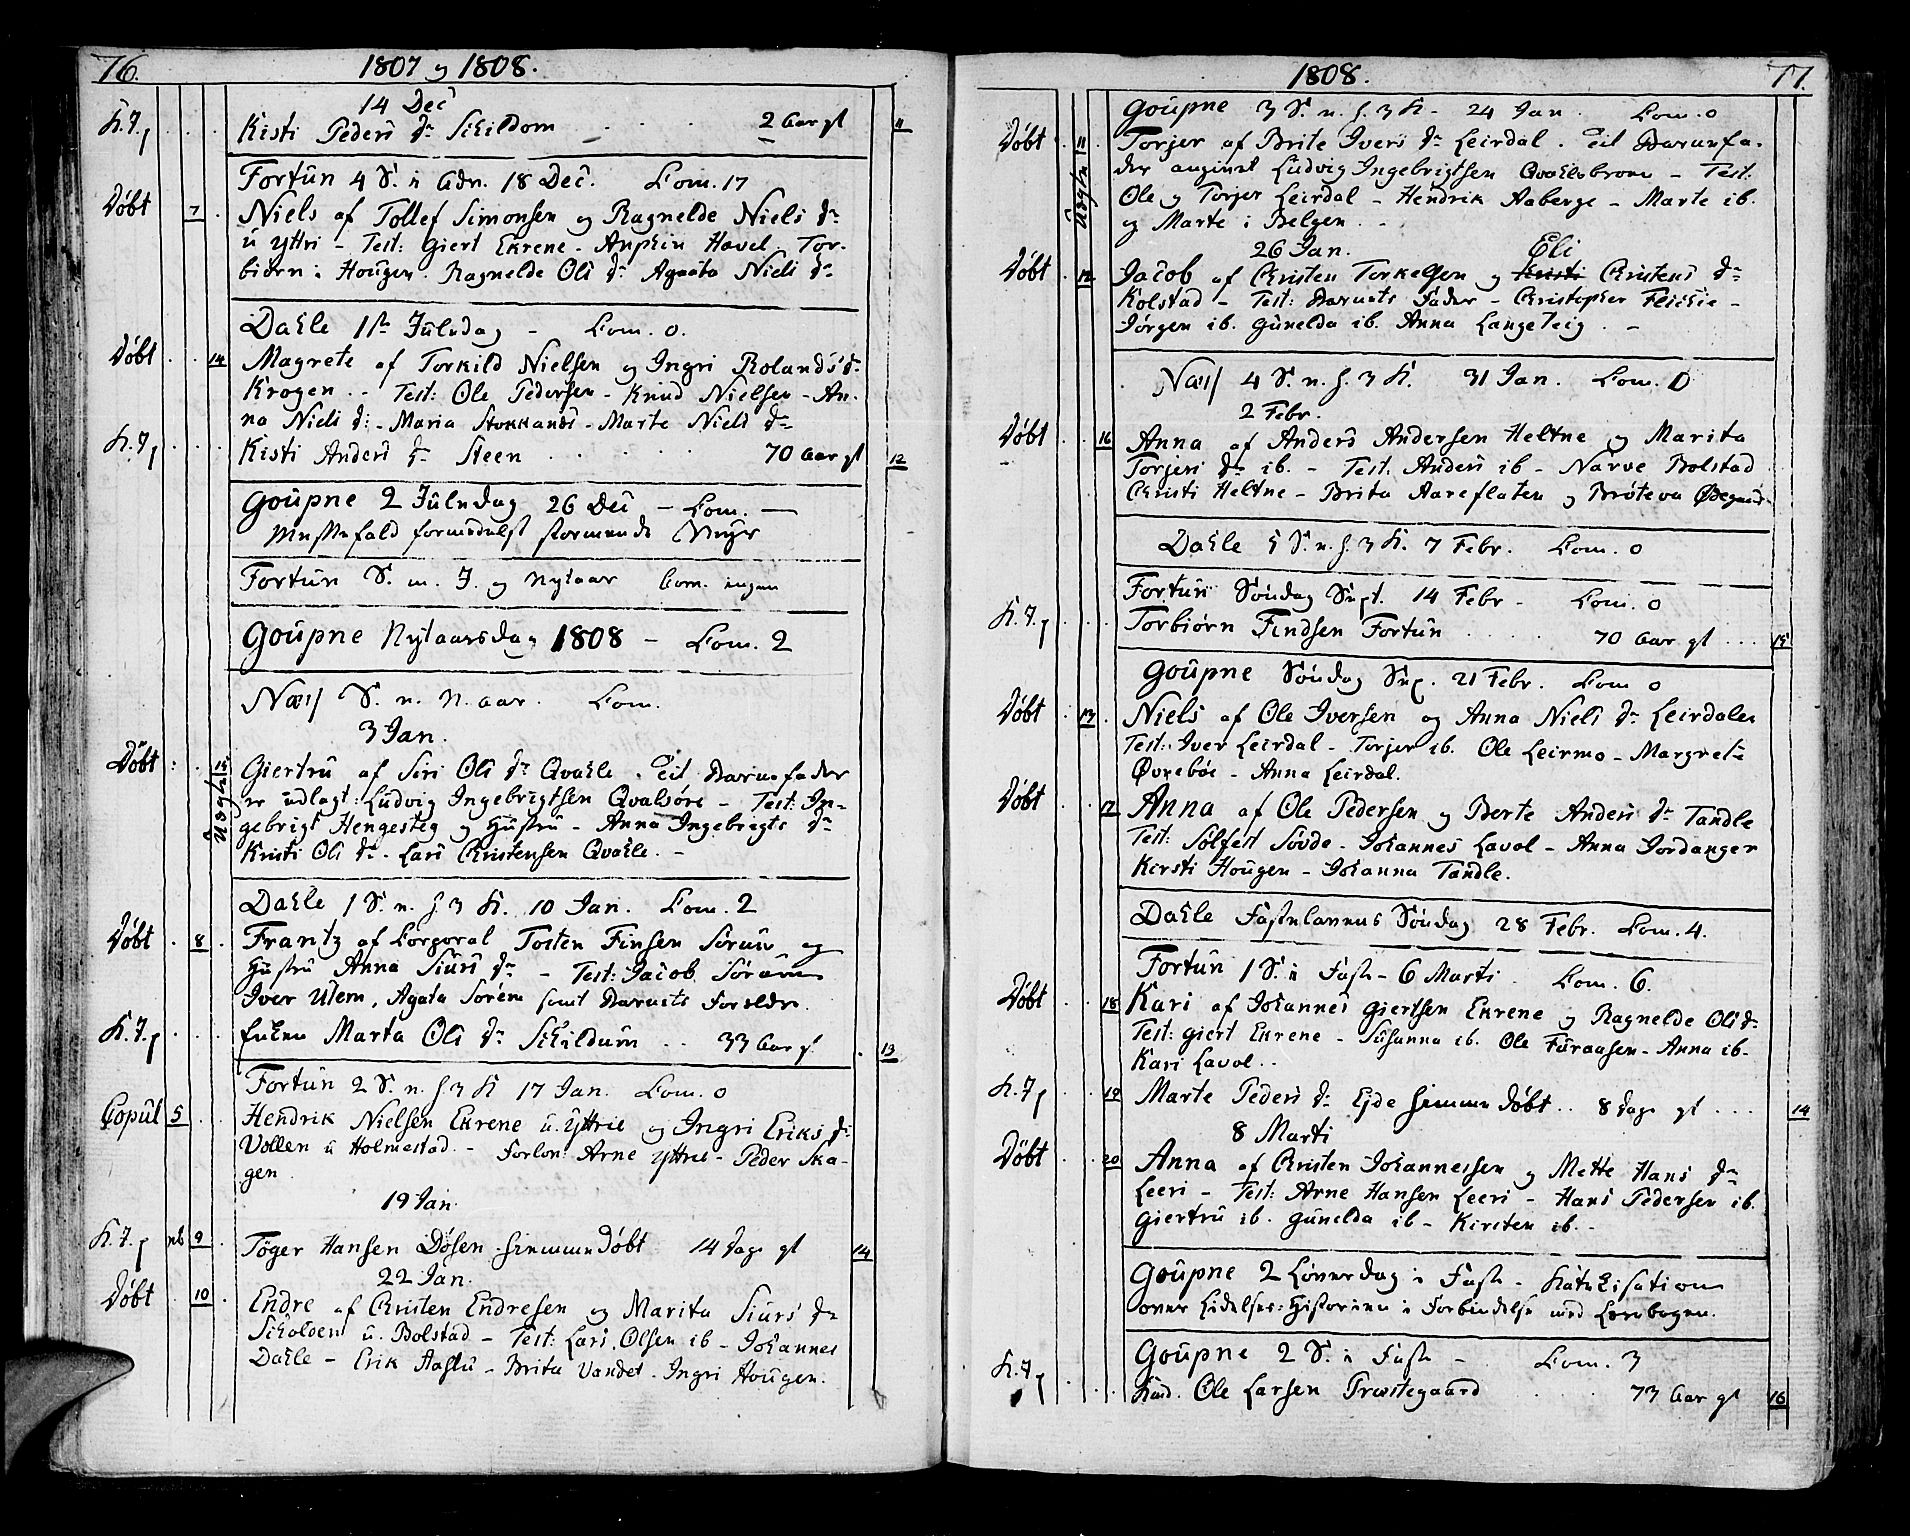 76. 1807 og 1808.
14 Dec
K. J. p Kisti Peders Dr Schildom 2 Aar gl 11
Fortun 4 S. i Adv. 18 Dec. Com. 17
Døbt 7 Niels af Tollef Simonsen og Ragnelde Niels Dr
u Yttri - Test: Giert Ekrene - Anphin Havel - Tor-
biørn i Hougen. Ragnelde Ols Dr Agaata Niels Dr
Dahle 1ste Juledag - Com. 0.
Døbt 14 Magrete af Torkild Nielsen og Ingri Rolands Dr
Krogen - Test: Ole Pedersen - Knud Nielsen - An-
na Niels Dr - Maria Stokkands - Marte Niels Dr
K. J. p Kisti Anders Dr Steen 70 Aar gl 12
Goupne 2 Juledag 26 Dec - Com. -
Messefald formedelst stormende Veyr
Fortun S. m. J. og Nytaar Com. ingen
Goupne Nytaarsdag 1808 - Com. 2
Næss S. n. N. aar. Com.
3 Jan.
Døbt 15 Uægte Giertru af Siri Ols Dr Qvahle. Til Barnefader
er udlagt: Ludvig Ingebrigtsen Qvalsøre - Test: In-
gebrigt Hengesteg og Hustru - Anna Ingebrigts Dr
Kristi Ols Dr. Lars Christensen Qvahle. -
Dahle 1 S. n. H. 3 K. 10 Jan. Com. 2
Døbt 8 Frantz af Corporal Tosten Finsen Sørum og
Hustru Anna Siurs Dr - Test: Jacob Sørum
Iver Utem, Agata Sørem samt Barnets Forældre.
K. J. p Enken Marta Ols Dr Schildum 33 Aar gl 13
Fortun 2 S. n. H. 3 K 17 Jan. Com. 0
Copul 5 Hendrik Nielsen Ekrene u. Yttrie og Ingri Eriks Dr
Vollen u Holmestad - Forlov: Arne Yttrie - Peder Ska-
gen
19 Jan.
K. J. p nb 9 Tøger Hansen Døsen hiemmedøbt 14 Dage gl 14
22 Jan.
Døbt 10 Endre af Christen Endresen og Marita Siurs Dr
Scholden u. Bolstad - Test: Lars Olsen ib - Johannes
Dahle - Erik Aaslu - Brita Vandet. Ingri Hougen.
1808. 77.
Goupne 3 S. n. H. 3 K - 24 Jan. Com. 0
Døbt 11 Uægte Torjer af Brite Ivers Dr Leirdal. Til Barnefa-
der angivet Ludvig Ingebrigtsen Test.
Ole og Torjer Leirdal - Hendrik Aaberge - Marte ib.
og Marte i Belgen.
26 Jan. Eli
Døbt 12 Jacob af Christen Torkelsen og Kristi Christens Dr
Kolstad - Test: Barnets Fader - Christopher Flickie -
Jørgen ib. Gunelda ib. Anna Langeteig. -
Næss 4 S. n. H. 3 K. 31 Jan. Com. 0
2 Febr.
Døbt 16 Anna af Anders Andersen Heltne og Marita
Torjers Dr ib. - Test. Anders ib - Narve Bolstad
Christi Heltne - Brita Aareflaten og Brøteva Ødegaard
Dahle 5 S. n. H. 3 K. 7 Febr. Com. 0
Fortun Søndag Sept. 14 Febr - Com. 0
K. J. p Torbiørn Findsen Fortun 70 Aar gl 15
Goupne Søndag Sex. 21 Febr. Com 0
Døbt 13 Niels af Ole Iversen og Anna Niels Dr Leirdalen
Test: Iver Leirdal - Torjer ib. Ole Leirmo - Margrete
Øvrebøe - Anna Leirdal.
Døbt 17 Anna af Ole Pedersen og Berte Anders Dr Tandle
Test: Sølfest Søvde - Johannes Lavol - Anna Jordanger
Kirsti Hougen - Johanna Tandle.
Dahle Fastelavns Søndag 28 Febr. Com. 4.
Fortun 1 S. i Faste - 6 Marti Com. 6.
Døbt 18 Kari af Johannes Giertsen Ekrene og Ragnelde Ols Dr
Test: Giert Ekrene - Susanna ib. Ole Furaasen - Anna ib.
Kari Lavol.
K. J. p 19 Marte Peders Dr Ejde hiemmedøbt 8 Dage gl 14
8 Marti
Døbt 20 Anna af Christen Johannessen og Mette Hans Dr
Leeri - Test: Arne Hansen Leeri - Hans Pedersen ib.
Giertru ib. Gunelda ib - Kirsten ib. -
Goupne 2 Løverdag i Faste - Katekisation
over Lidelses-Historien i Forbindelse med Lærebogen.
Goupne 2 S. i Faste - Com. 3
K. J. p Ole Larsen Præstegaard 73 Aar gl 16